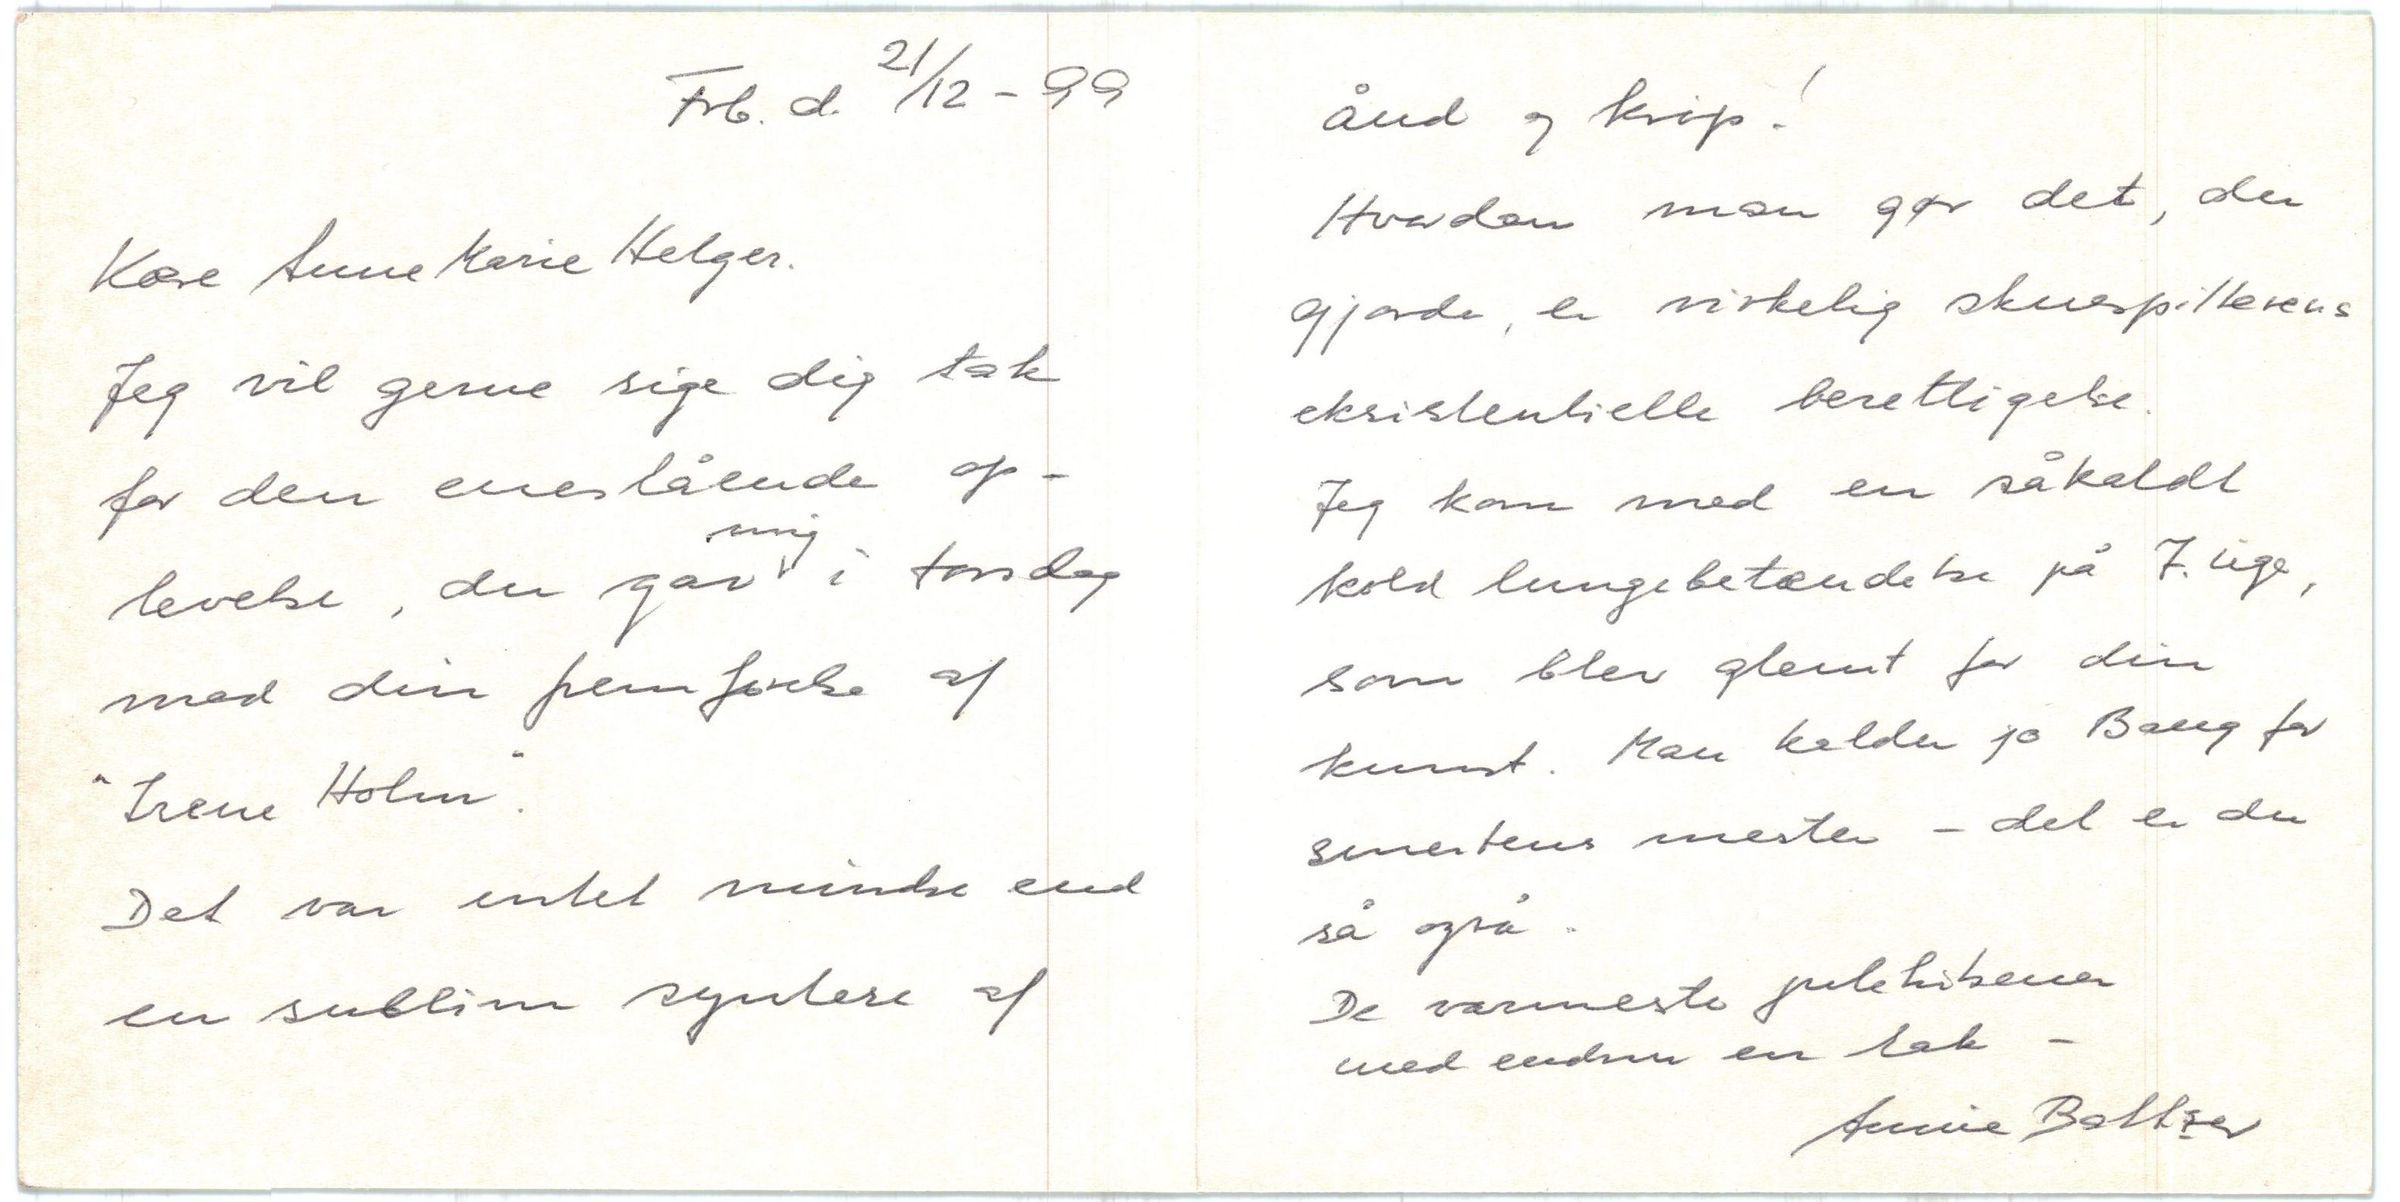 Frb. d. 21/12 - 99
Kære Anne Marie Helger.
Jeg vil gerne sige dig tak
for den enestående op-
levelse, du gav mig i torsdag
med din fremførelse af
"Irene Holm".
Det var intet mindre end
en sublim syntese af
ånd og krop!
Hvordan man gør det, du
gjorde, er virkelig skuespillerens
eksistentielle berettigelse.
Jeg kom med en såkaldt
kold lungebetændelse på 7. uge,
som blev glemt for din
kunst. Man kalder jo Bang for
smertens mester - det er du
så også.
De varmeste julehilsener
med endnu en tak -
Annie Baltzer